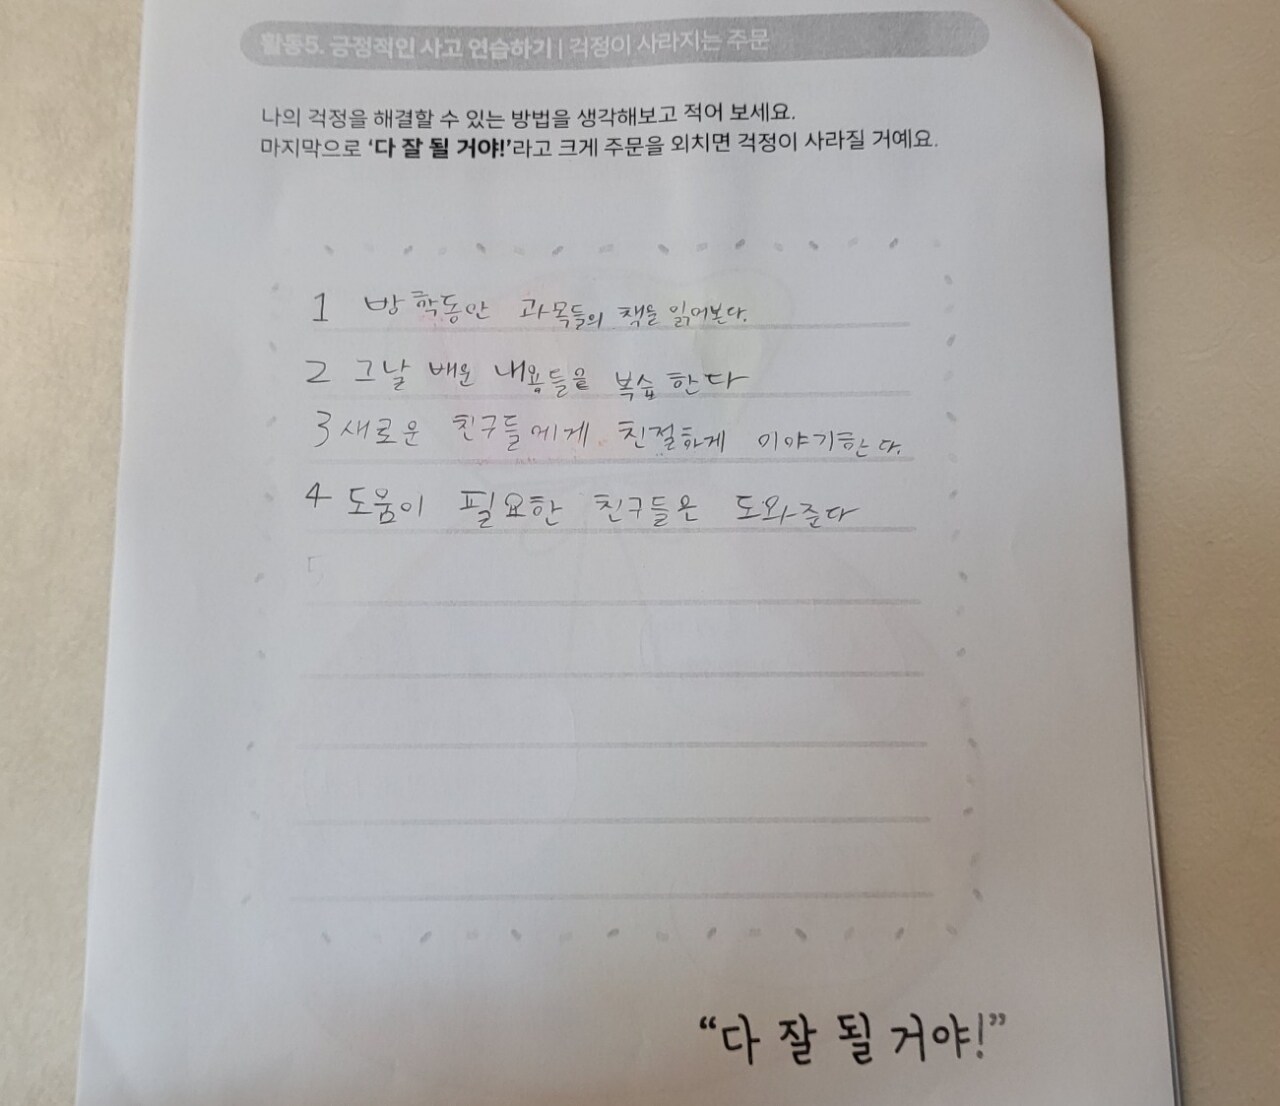 활동5. 긍정적인 사고 연습하기 | 걱정이 사라지는 주문
나의 걱정을 해결할 수 있는 방법을 생각해보고 적어 보세요.
마지막으로 ‘다 잘 될 거야!’라고 크게 주문을 외치면 걱정이 사라질 거예요.
1 방학동안 과목들의 책을 읽어본다.
2 그날 배운 내용들을 복습 한다
3 새로운 친구들에게 친절하게 이야기한다.
4 도움이 필요한 친구들은 도와준다
5
“다 잘 될 거야!”